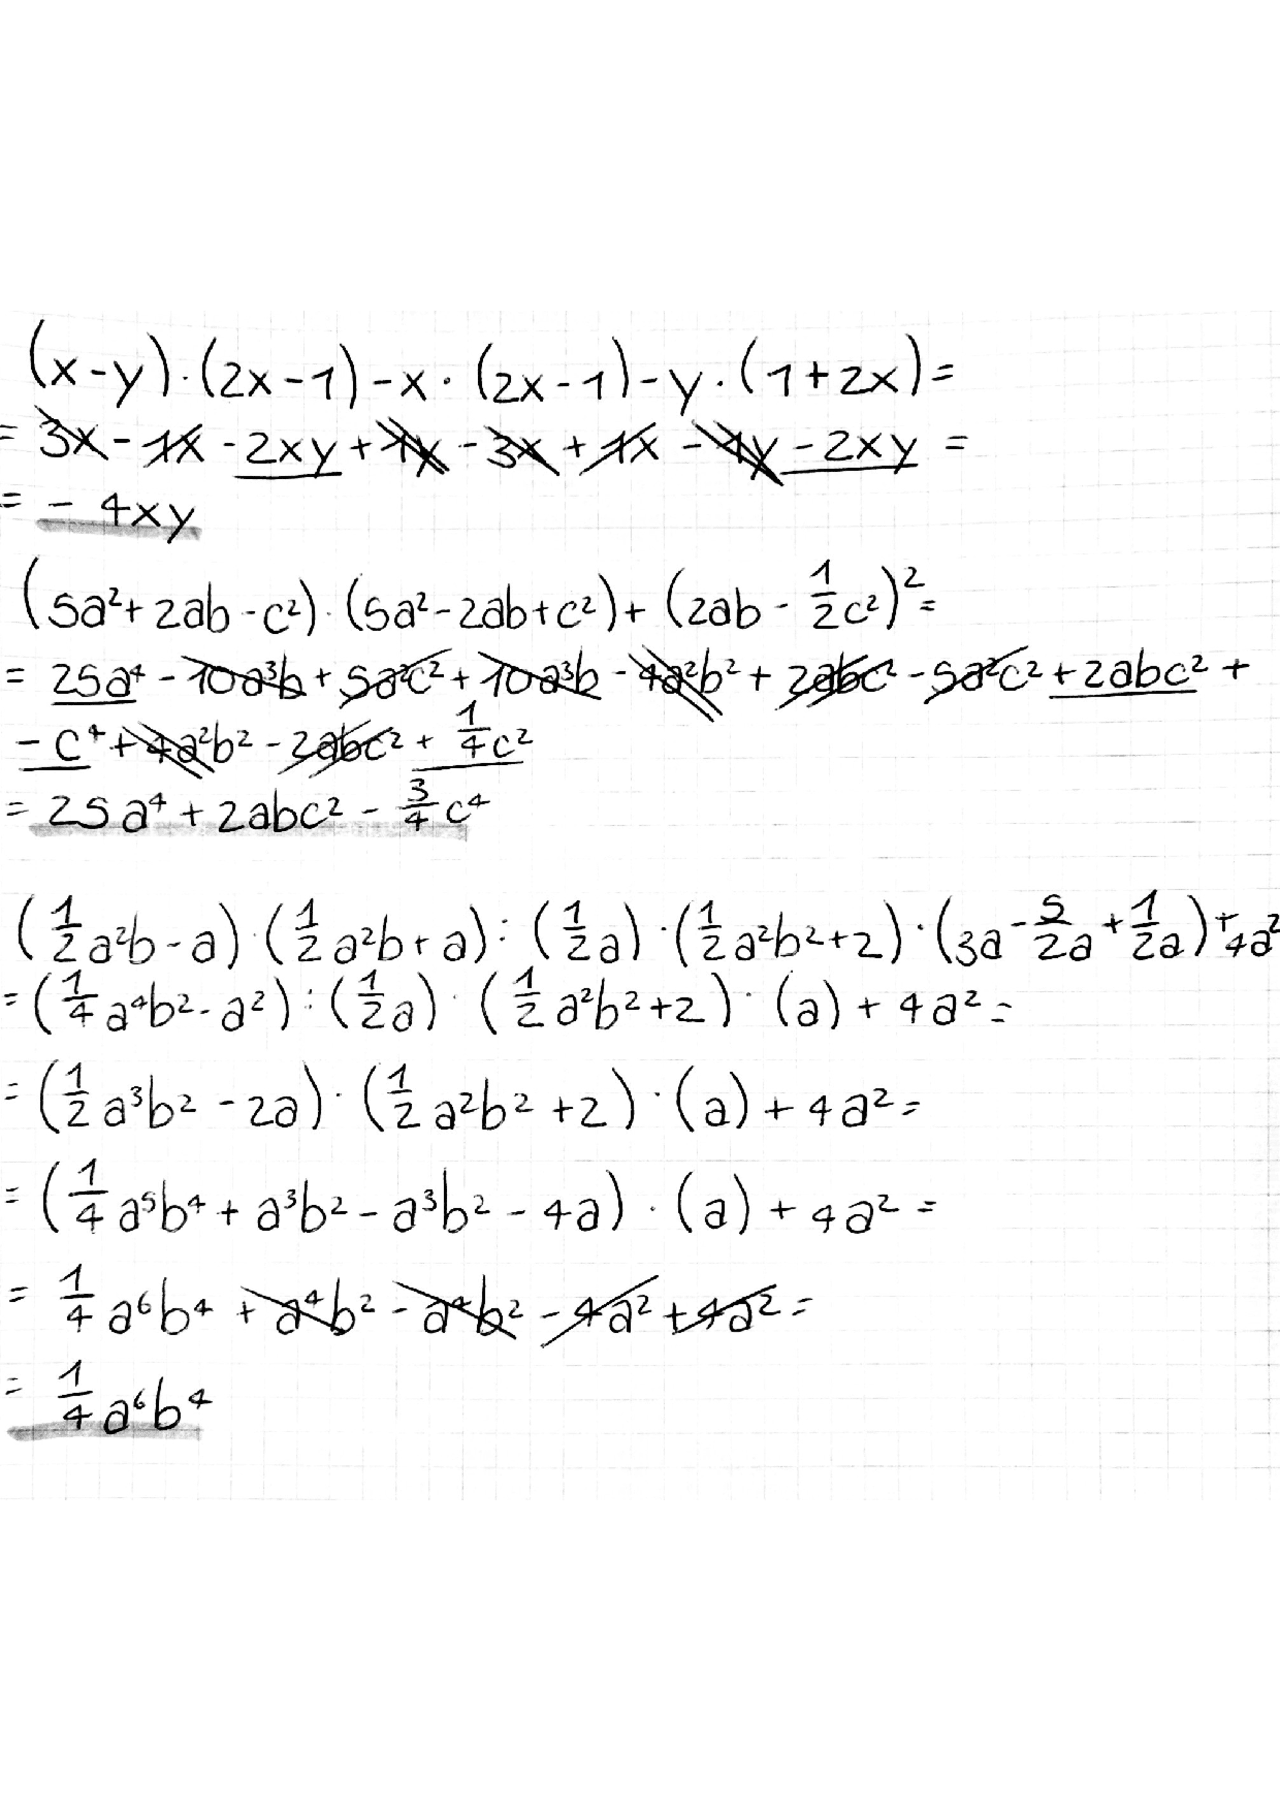 (x-y)·(2x-1)-x·(2x-1)-y·(1+2x)=
= 3x - 1x - 2xy + 1y - 3x + 1x - 1y - 2xy =
= - 4xy
(5a²+2ab-c²)·(5a²-2ab+c²)+(2ab-1/2c²)²=
= 25a⁴ - 10a³b + 5a²c² + 10a³b - 4a²b² + 2abc² - 5a²c² + 2abc² +
- c⁴ + 4a²b² - 2abc² + 1/4c²
= 25a⁴ + 2abc² - 3/4c⁴
(1/2a²b-a)·(1/2a²b+a):(1/2a)·(1/2a²b²+2)·(3a-5/2a+1/2a)+4a²
=(1/4a⁴b²-a²):(1/2a)·(1/2a²b²+2)·(a)+4a²=
=(1/2a³b²-2a)·(1/2a²b²+2)·(a)+4a²=
=(1/4a⁵b⁴+a³b²-a³b²-4a)·(a)+4a²=
= 1/4a⁶b⁴ + a⁴b² - a⁴b² - 4a² + 4a² =
= 1/4a⁶b⁴